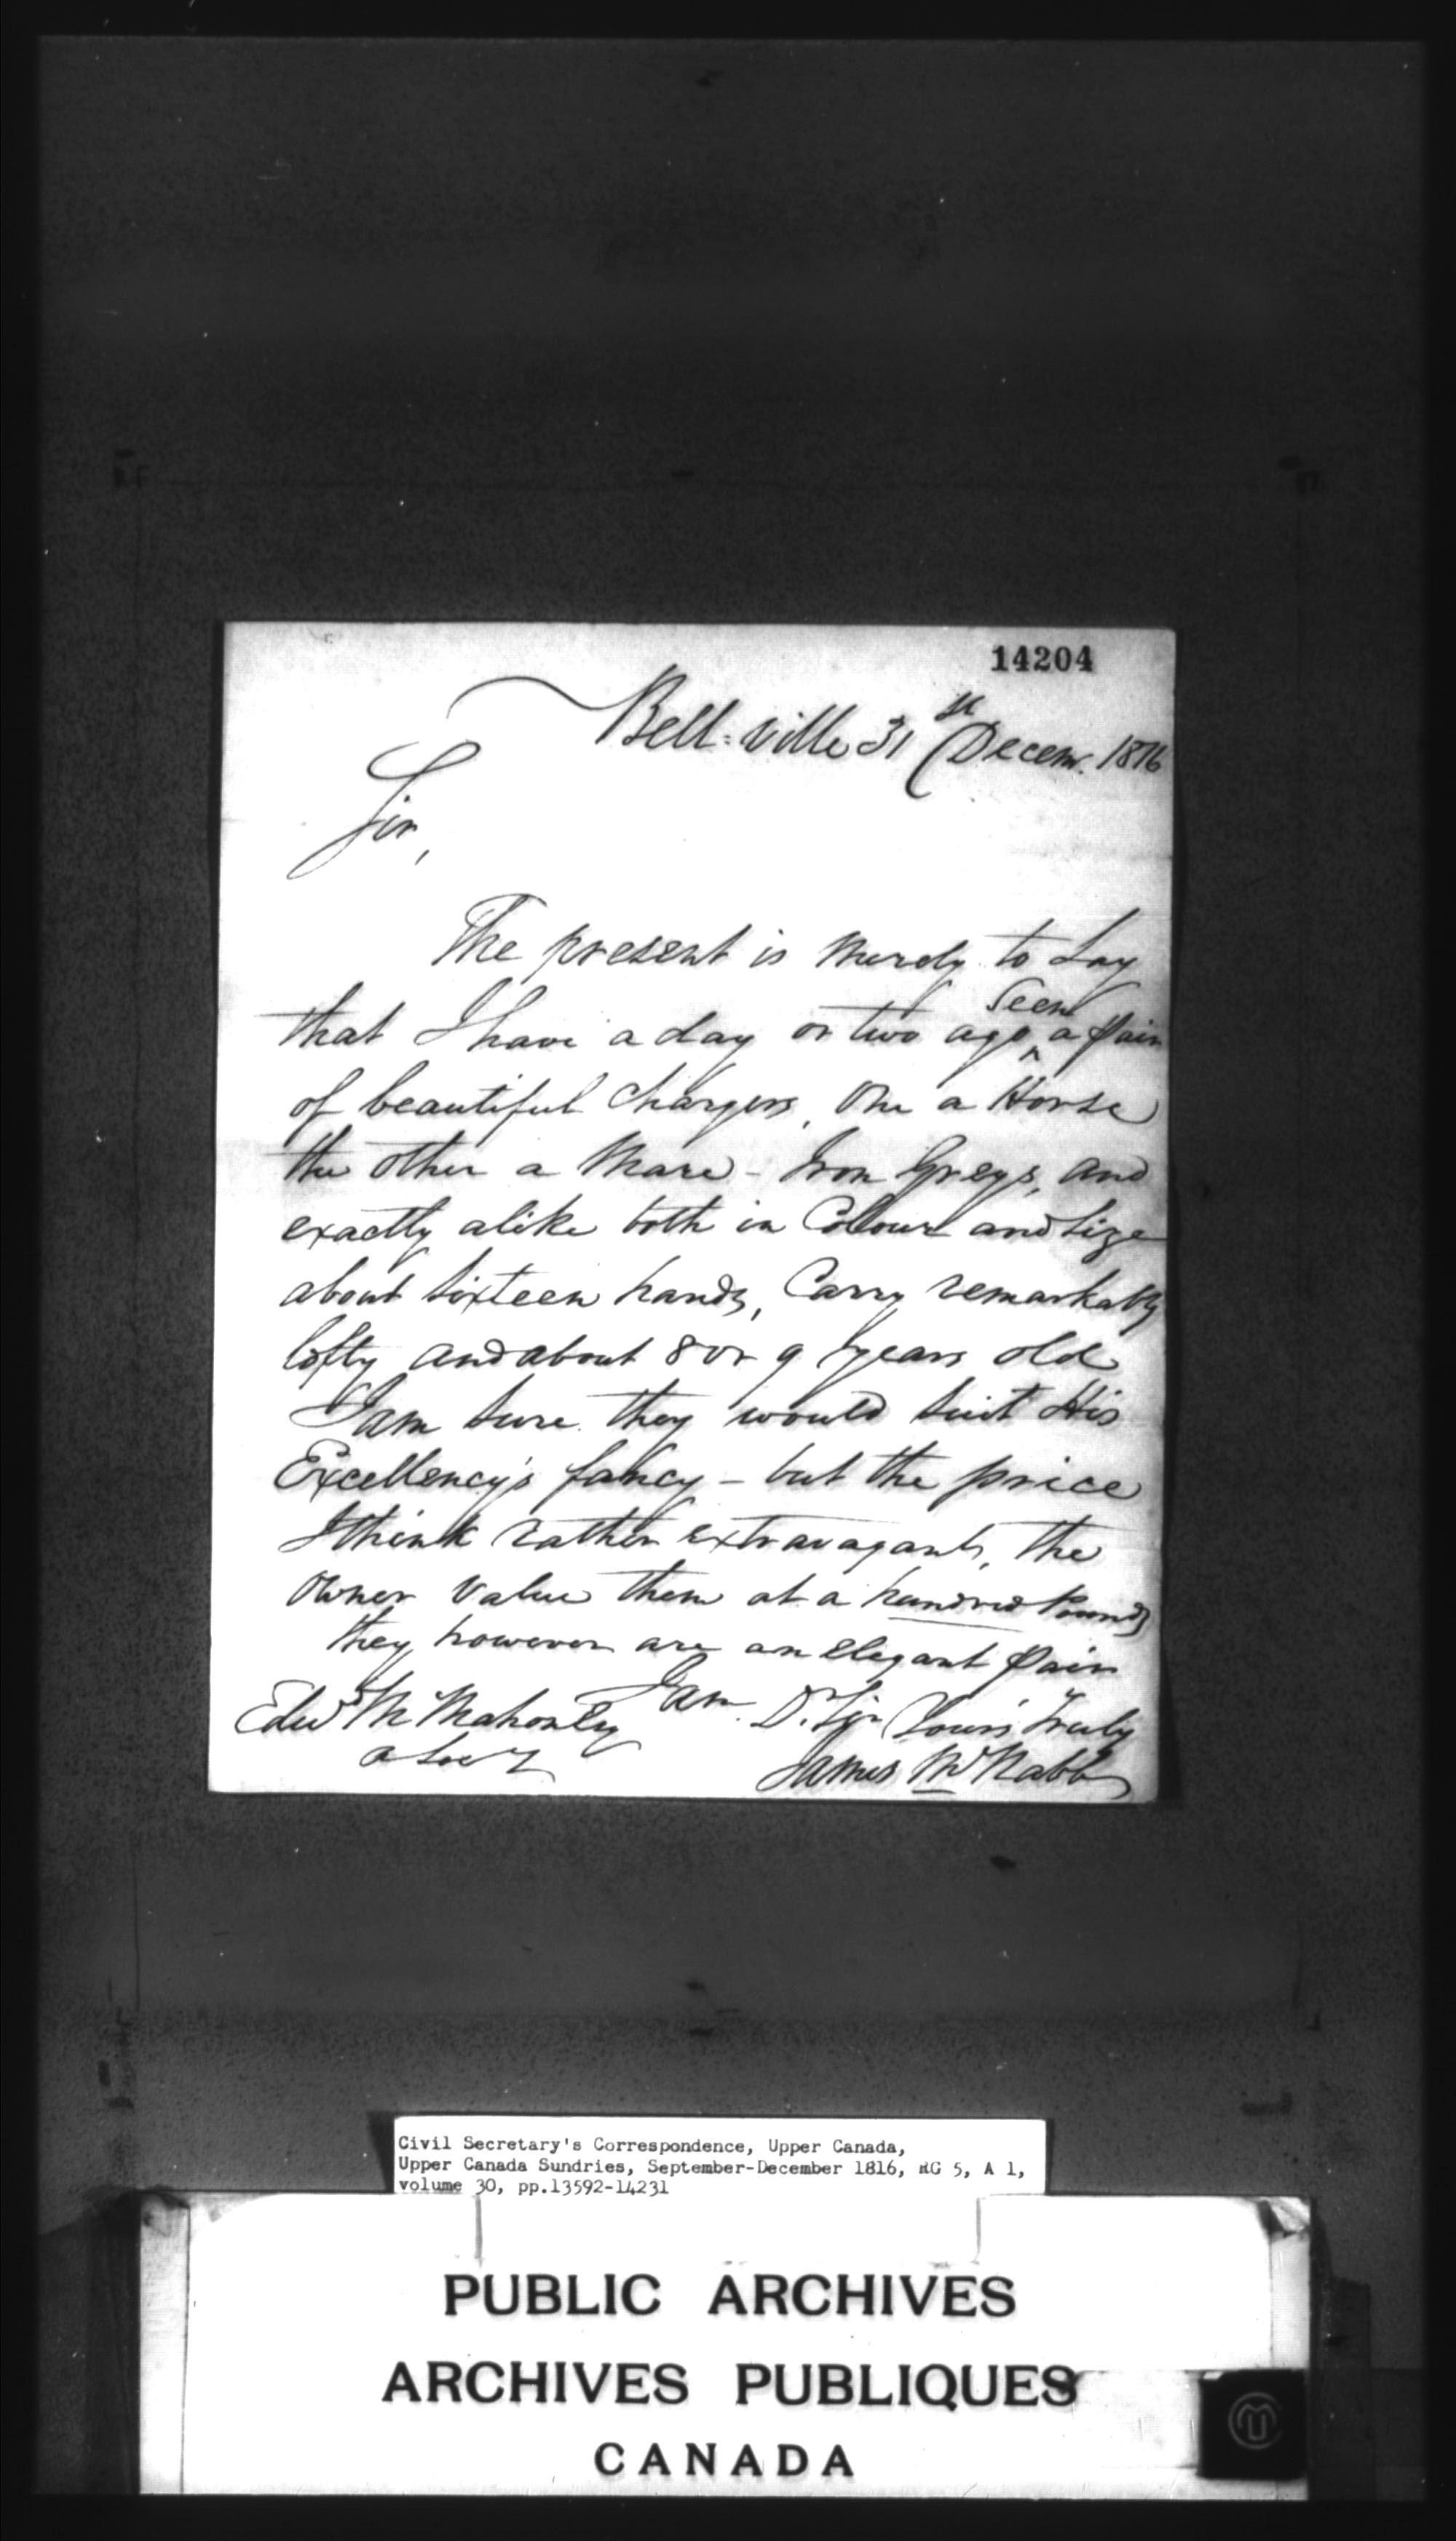 14204
Bell=ville 31st Decem. 1816
Sir,
The present is merely to Say
that I have a day or two ago, a pair
Seen
of beautiful Chargers, One a Horse
the Other a Mare - Iron Greys, and
exactly alike both in Colour and Size
about Sixteen hands, Carry remarkably
lofty and about 8 or 9 years old
I am Sure they would Suit His
Excellency's fancy - but the price
I think rather extravagant, the
Owner Value them at a hundred Pounds
they however are an elegant pair
I am D. Sir Yours truly
Edwd McMahon Esq
James McNabb
Civil Secretary's Correspondence, Upper Canada,
Upper Canada Sundries, September-December 1816, RG 5, A 1,
volume 30, pp.13592-14231
PUBLIC ARCHIVES
ARCHIVES PUBLIQUES
CANADA